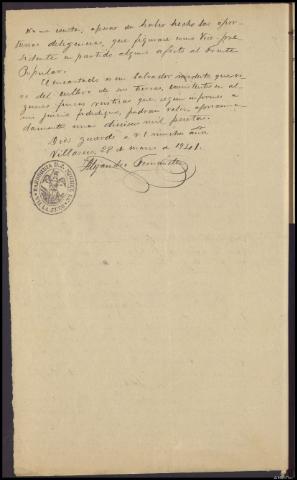 No me consta, apesar de haber hecho las opor-
tunas diligencias, que figurase como Vice pre-
sidente en partido alguno afecto al Frente
Popular.
El encartado es un labrador que vi-
ve del cultivo de sus tierras, consistentes en al-
gunas fincas rusticas que, segun informes a
una pericia fidedigna, podran valer aproxima-
damente unas mil pesetas.
Dios guarde a V.I. muchos años
Villa 28 de marzo de 1941.
Alejandro